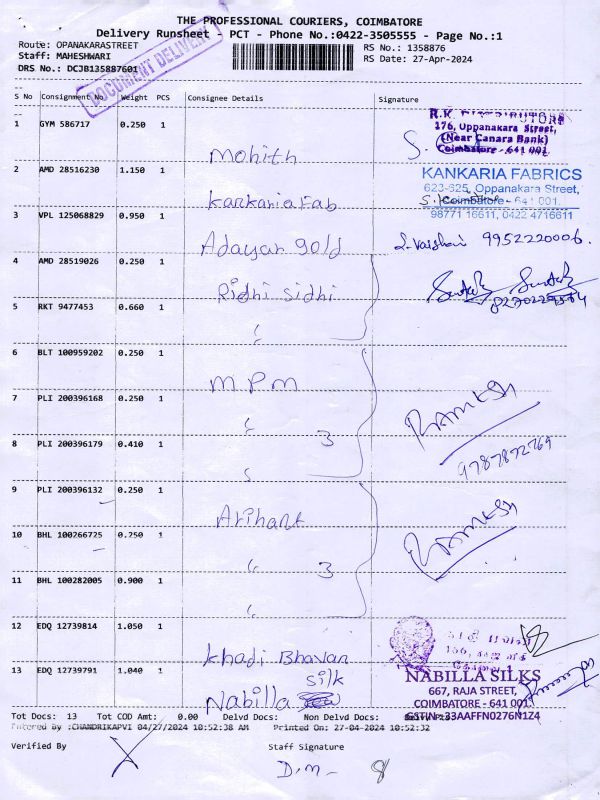 THE PROFESSIONAL COURIERS, COIMBATORE
Delivery Runsheet - PCT - Phone No.:0422-3505555 - Page No.:1
Route: OPANAKARASTREET
RS No.: 1358876
Staff: MAHESHWARI
RS Date: 27-Apr-2024
DRS No.: DCJB135887601
DOCUMENT DELIVERY
S No Consignment No Weight PCS Consignee Details Signature
1 GYM 586717 0.250 1 Mohith
176, Oppanakara Street,
(Near Canara Bank)
Coimbatore - 641 001.
2 AMD 28516230 1.150 1 Kankaria Fab
KANKARIA FABRICS
623-625, Oppanakara Street,
Coimbatore - 641 001.
98771 16611, 0422 4716611
3 VPL 125068829 0.950 1 Adayar gold
9952220006.
4 AMD 28519026 0.250 1 Ridhi sidhi
5 RKT 9477453 0.660 1 "
6 BLT 100959202 0.250 1 MPM
7 PLI 200396168 0.250 1 "
3
RAMESH
8 PLI 200396179 0.410 1 "
9787872769
9 PLI 200396132 0.250 1 Arihant
10 BHL 100266725 0.250 1 "
3
RAMESH
11 BHL 100282005 0.900 1 "
12 EDQ 12739814 1.050 1 Khadi Bhavan
13 EDQ 12739791 1.040 1 Nabilla silk
NABILLA SILKS
667, RAJA STREET,
COIMBATORE - 641 001.
GSTIN: 33AAFFN0276N1Z4
Tot Docs: 13 Tot COD Amt: 0.00 Delvd Docs: Non Delvd Docs:
Entered By :CHANDRIKAPVI 04/27/2024 10:52:38 AM Printed On: 27-04-2024 10:52:32
Verified By Staff Signature
D.M- 8